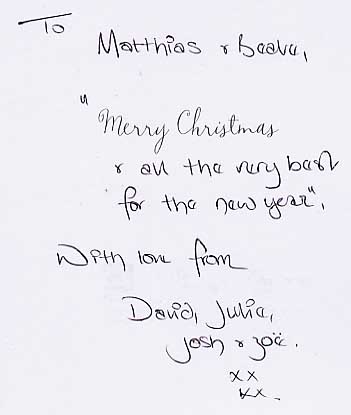 To
Matthias & Beate,
"Merry Christmas
& all the very best
for the new year",
With love from
David, Julia,
Josh & Zoë.
xx
xx.